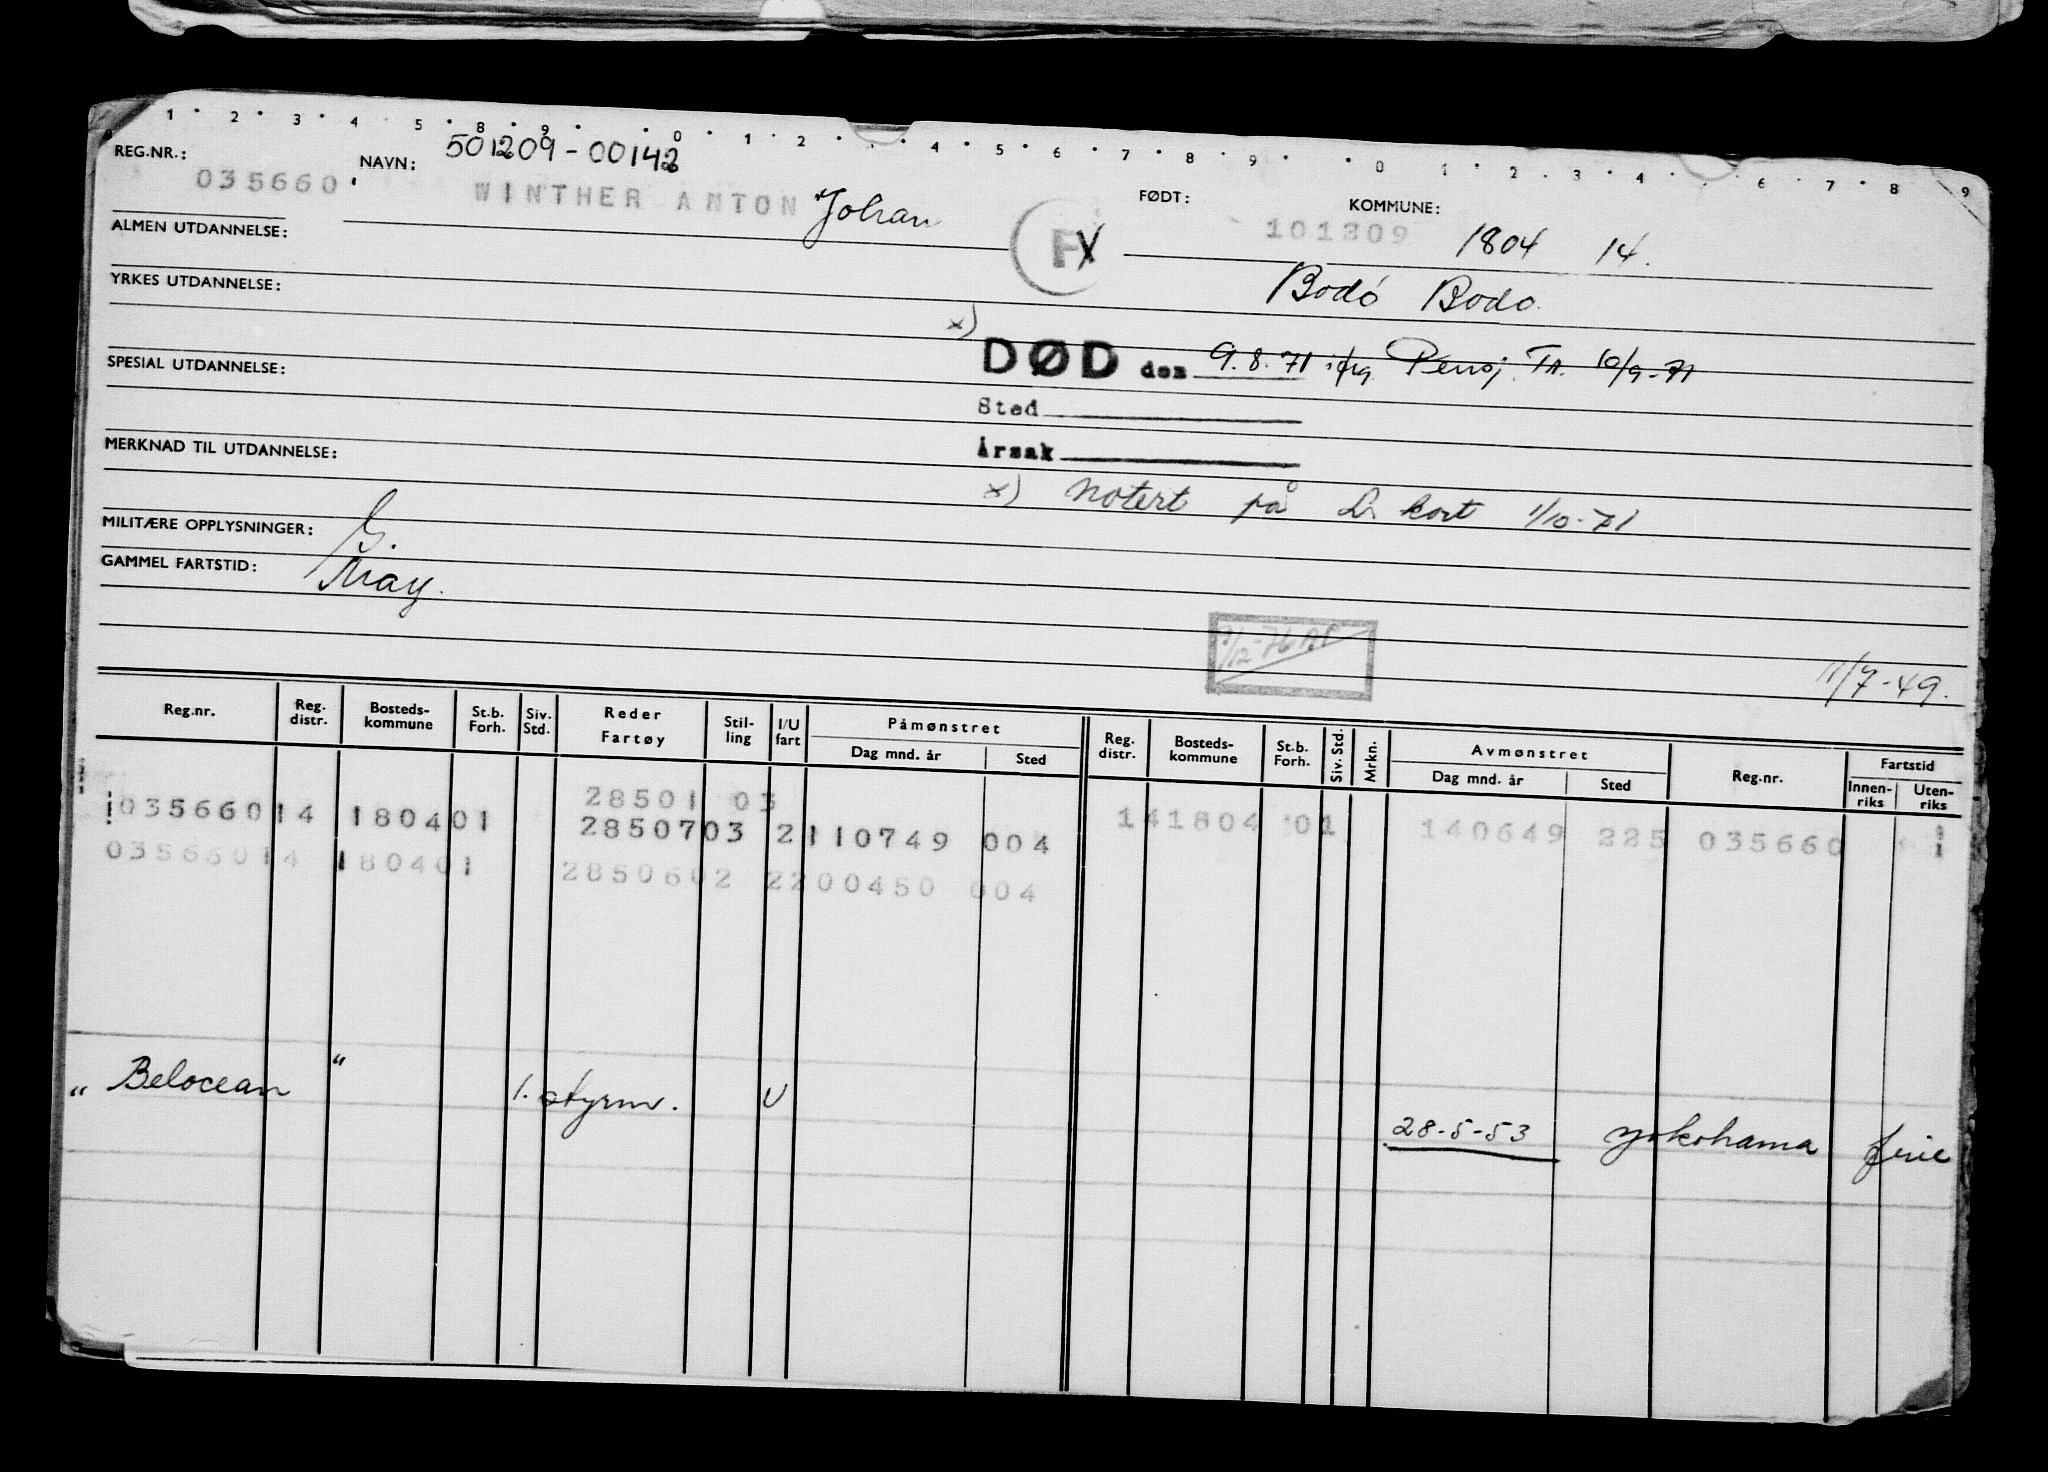 1 2 3 4 5 8 9 0 1 2 4 5 6 7 8 9 0 1 2 3 4 6 7 8 9
REG.NR.: 035660 NAVN: 501209-00142
WINTHER ANTON Johan FØDT: 101209 KOMMUNE: 1804 14.
ALMEN UTDANNELSE: F
Bodø Bodø
YRKES UTDANNELSE:
x) DØD den 9.8.71 ifg. Pensj. Tr. 10/9-71
SPESIAL UTDANNELSE:
Sted
MERKNAD TIL UTDANNELSE:
Årsak
x) Notert på kort 1/10-71
MILITÆRE OPPLYSNINGER:
GAMMEL FARTSTID:
/12-76
11/7-49.
Reg.nr. Reg. distr. Bosteds-kommune St.b. Forh. Siv. Std. Reder Fartøy Stil-ling I/U fart Påmønstret Dag mnd. år Sted Reg. distr. Bosteds-kommune St.b. Forh. Siv. Std. Mrkn. Avmønstret Dag mnd. år Sted Reg.nr. Fartstid Innen-riks Uten-riks
28501 03 141804 01 140649 225 035660
035660 14 1804 01 28507 03 2 110749 004
035660 14 1804 01 28506 02 2 200450 004
"Belocean" 1. styrm. U 28-5-53 Yokohama ferie